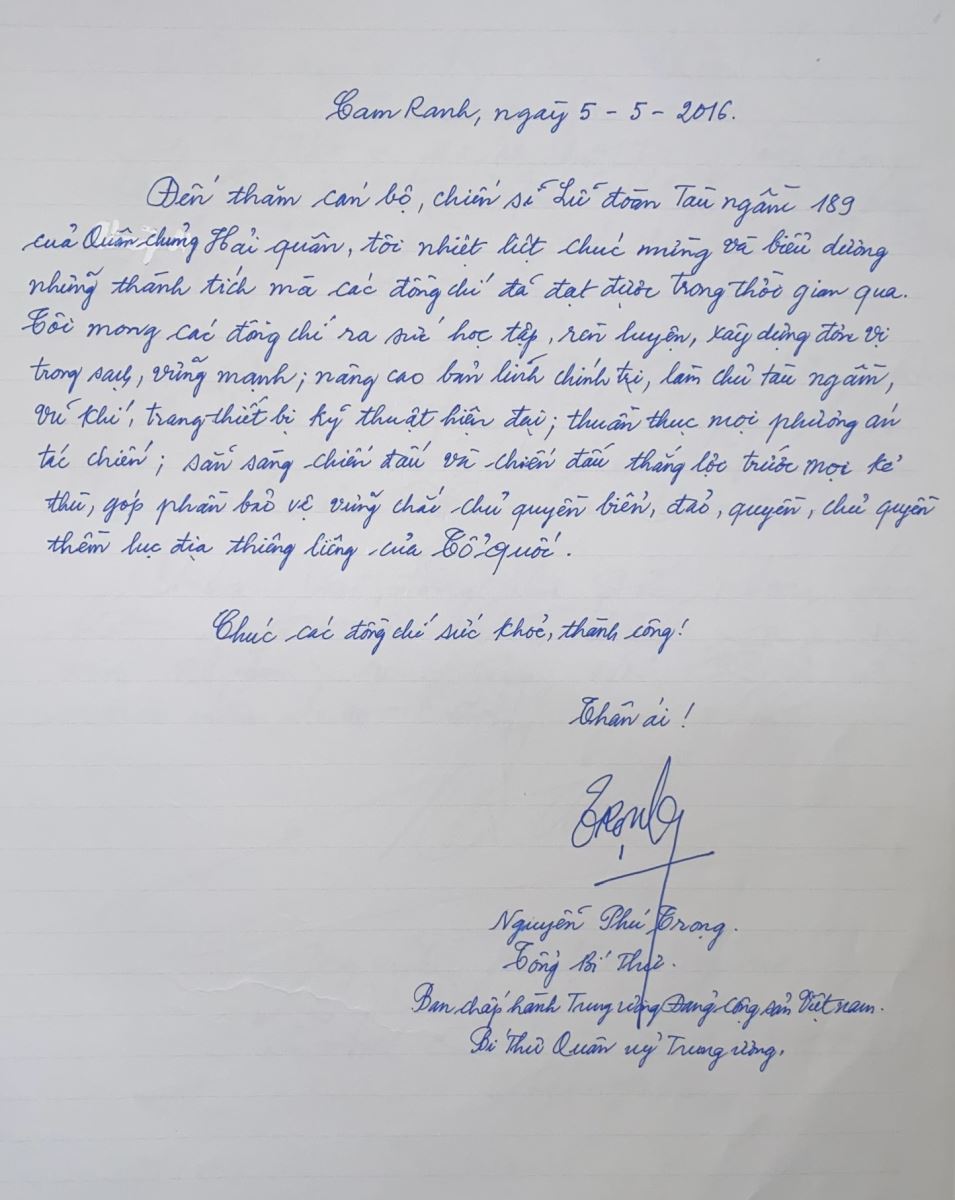 Cam Ranh, ngày 5 - 5 - 2016.
Đến thăm cán bộ, chiến sĩ Lữ đoàn Tàu ngầm 189
của Quân chủng Hải quân, tôi nhiệt liệt chúc mừng và biểu dương
những thành tích mà các đồng chí đã đạt được trong thời gian qua.
Tôi mong các đồng chí ra sức học tập, rèn luyện, xây dựng đơn vị
trong sạch, vững mạnh; nâng cao bản lĩnh chính trị, làm chủ tàu ngầm,
vũ khí, trang thiết bị kỹ thuật hiện đại; thuần thục mọi phương án
tác chiến; sẵn sàng chiến đấu và chiến đấu thắng lợi trước mọi kẻ
thù, góp phần bảo vệ vững chắc chủ quyền biển, đảo, quyền, chủ quyền
thềm lục địa thiêng liêng của Tổ quốc.
Chúc các đồng chí sức khoẻ, thành công!
Thân ái!
Trọng
Nguyễn Phú Trọng.
Tổng Bí Thư.
Ban chấp hành Trung ương Đảng cộng sản Việt nam.
Bí Thư Quân uỷ Trung ương.